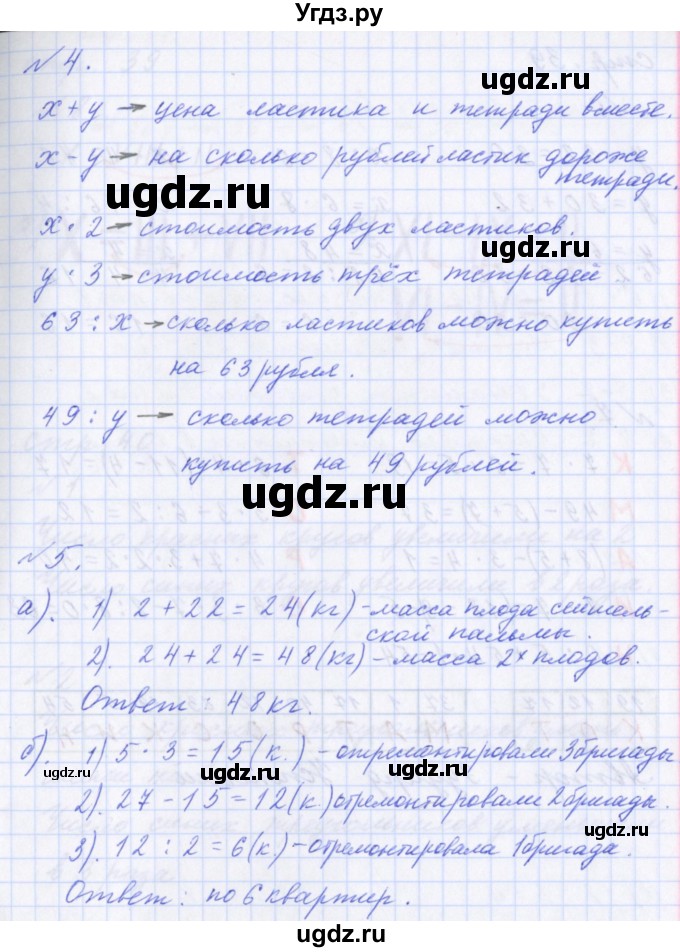 Угдз.ру
№ 4.
ugdz.ru
x + y → цена ластика и тетради вместе.
x - y → на сколько рублей ластик дороже
тетради.
ugdz.ru
ugdz.ru
x · 2 → стоимость двух ластиков.
y : 3 → стоимость трёх тетрадей
ugdz.ru
63 : x → сколько ластиков можно купить
на 63 рубля.
49 : y → сколько тетрадей можно
купить на 49 рублей.
ugdz.ru
№ 5.
ugdz.ru
а). 1) 2 + 22 = 24 (кг) - масса плода сейшель-
ской пальмы.
2). 24 + 24 = 48 (кг) - масса 2х плодов.
Ответ : 48 кг.
ugdz.ru
б). 1) 5 · 3 = 15 (к.) - отремонтировали 3 бригады
ugdz.ru
ugdz.ru
ugdz.ru
2). 27 - 15 = 12 (к.) отремонтировали 2 бригады.
ugdz.ru
3). 12 : 2 = 6 (к.) - отремонтировала 1 бригада.
Ответ : по 6 квартир.
ugdz.ru
Угдз.ру